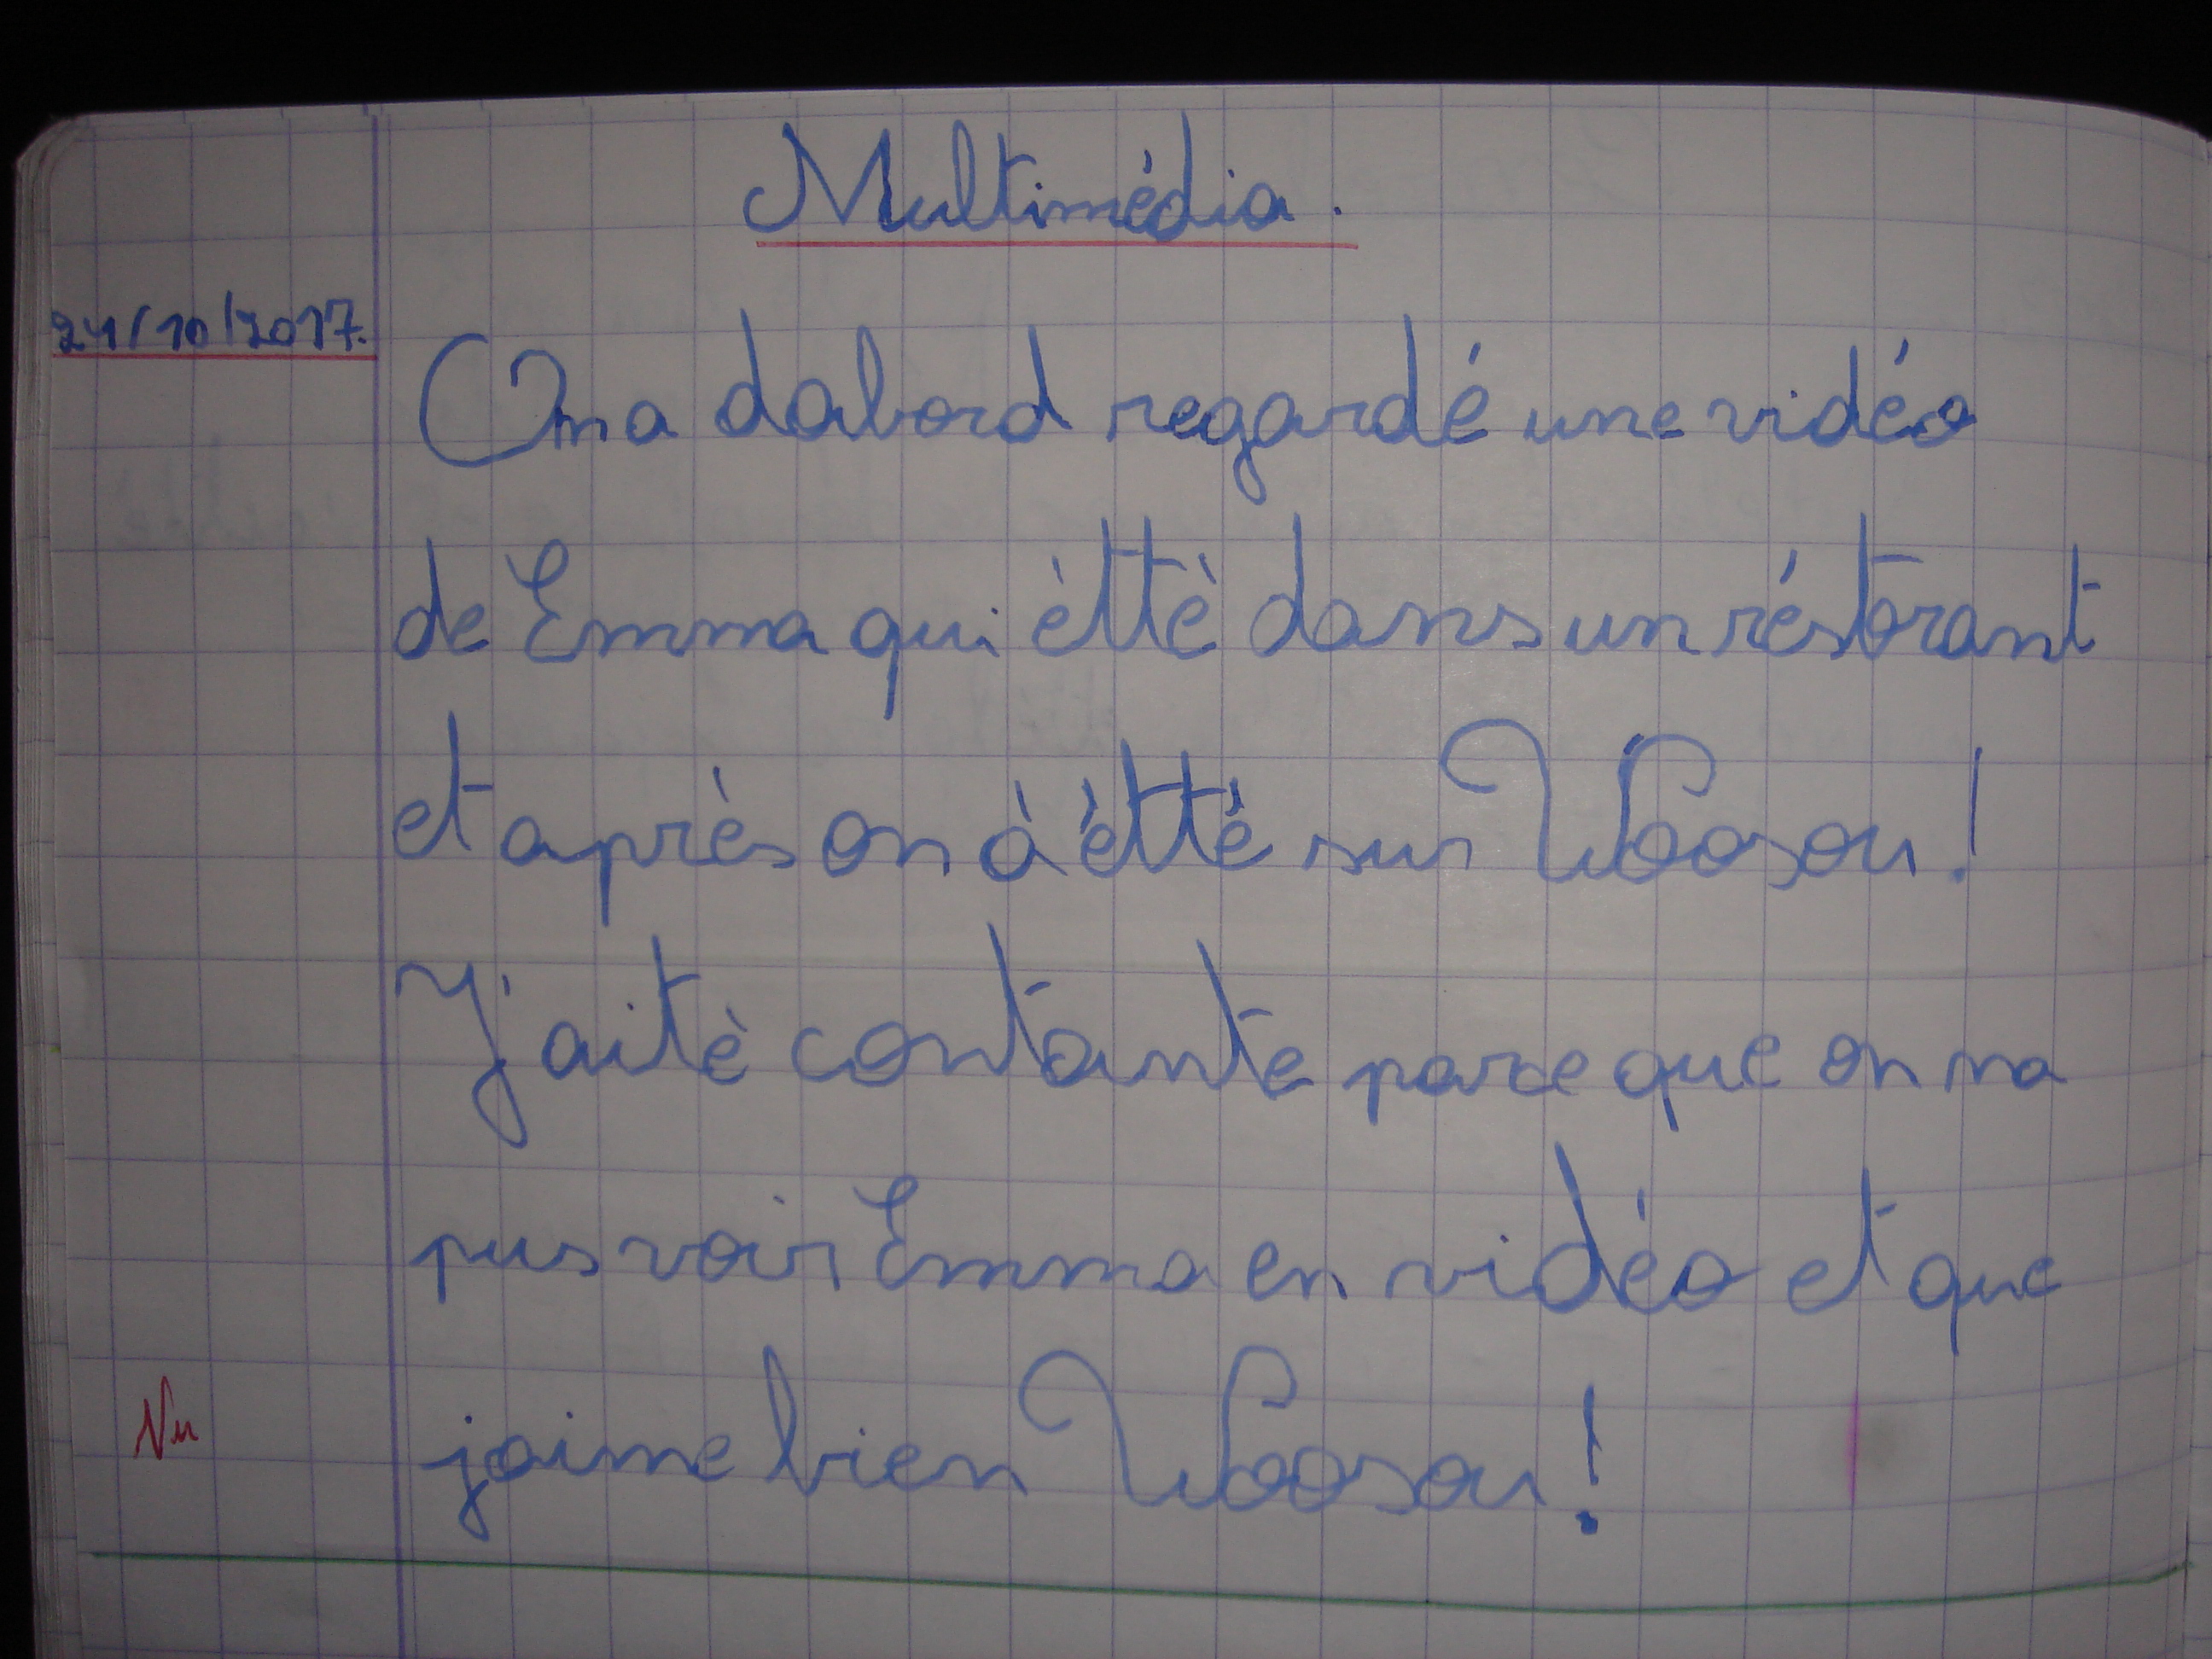 Multimédia.
24/10/2017.
On a dabord regardé une vidéo
de Emma qui èttè dans un réstorant
et après on à étté sur Wooson!
J'aitè contante parce que on na
pus voir Emma en vidéo et que
jaime bien Wooson!
Vu